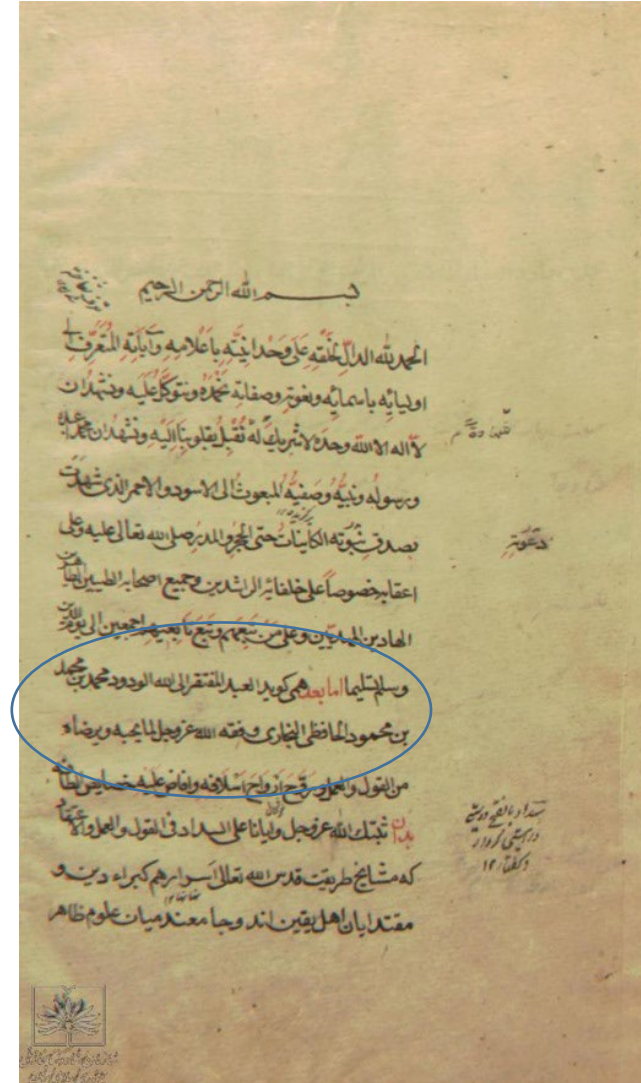 بسم الله الرحمن الرحيم
الحمد لله الدالِّ لخلقه على وحدانيته باعلامه وآياته المتعرف الى
اوليائه باسمائه ونعوته وصفاته نحمده ونتوكل عليه ونشهد ان
لا اله الا الله وحده لا شريك له نقبل بقلوبنا اليه ونشهد ان محمدا عبده
ورسوله ونبيه وصفيه المبعوث الى الاسود والاحمر الذى شهدت
بصدق نبوته الكاينات حتى الحجر والمدر صلى الله تعالى عليه وعلى
اعقابه خصوصاً على خلفائه الراشدين وجميع اصحابه الطيبين الطاهرين
الهادين المهديين وعلى من تبعهم وتبع تابعيهم اجمعين الى يوم الدين
وسلم تسليما اما بعد همى كويد العبد المفتقر الى الله الودود محمد بن محمد
بن محمود الحافظى البخارى وفقه الله عز وجل لما يحبه ويرضاه
من القول والعمل وروّح ارواح اسلافه وافاض عليه خصايص الطافه
بدان ثبتك الله عز وجل وايانا على السداد فى القول والعمل والاعتقاد
سداد بالفتح
كه مشايخ طريقت قدس الله تعالى اسرارهم كبراء دين و
مقتدايان اهل يقين اند وجامعند ميان علوم ظاهر